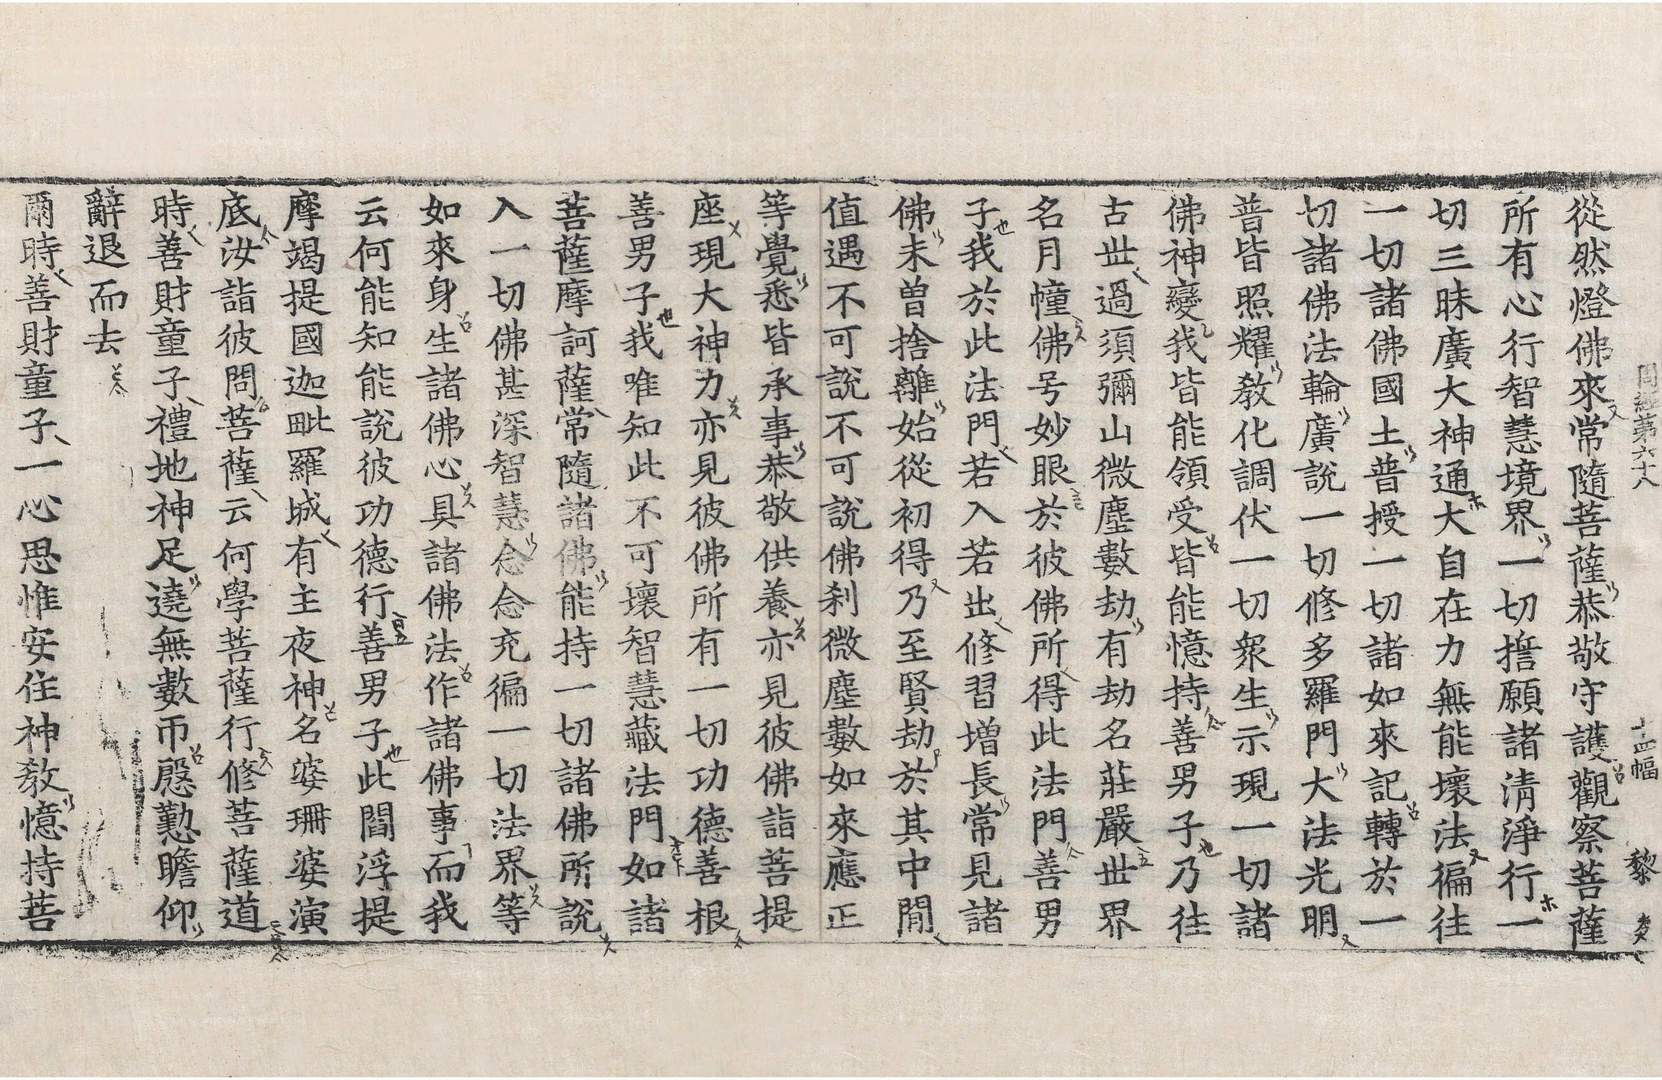 周經第六十八 十四幅 黎
從然燈佛來常隨菩薩恭敬守護觀察菩薩
所有心行智慧境界一切擔願諸清淨行一
切三昧廣大神通大自在力無能壞法徧往
一切諸佛國土普授一切諸如來記轉於一
切諸佛法輪廣說一切修多羅門大法光明
普皆照耀教化調伏一切衆生示現一切諸
佛神變我皆能領受皆能憶持善男子乃往
古世過須彌山微塵數劫有劫名莊嚴世界
名月幢佛号妙眼於彼佛所得此法門善男
子我於此法門若入若出修習增長常見諸
佛未曾捨離始從初得乃至賢劫於其中閒
值遇不可說不可說佛刹微塵數如來應正
等覺悉皆承事恭敬供養亦見彼佛詣菩提
座現大神力亦見彼佛所有一切功德善根
善男子我唯知此不可壞智慧藏法門如諸
菩薩摩訶薩常隨諸佛能持一切諸佛所說
入一切佛甚深智慧念念充徧一切法界等
如來身生諸佛心具諸佛法作諸佛事而我
云何能知能說彼功德行善男子此閻浮提
摩竭提國迦毗羅城有主夜神名婆珊婆演
底汝詣彼問菩薩云何學菩薩行修菩薩道
時善財童子禮地神足遶無數帀慇懃瞻仰
辭退而去
爾時善財童子一心思惟安住神教憶持菩